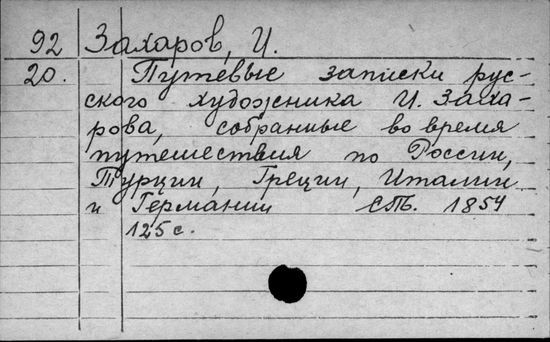 92 Захаров, И.
20. Путевые записки рус-
ского художника И. Заха-
рова, собранные во время
путешествия по России,
Турции, Греции, Италии
и Германии СПб. 1854
125 с.